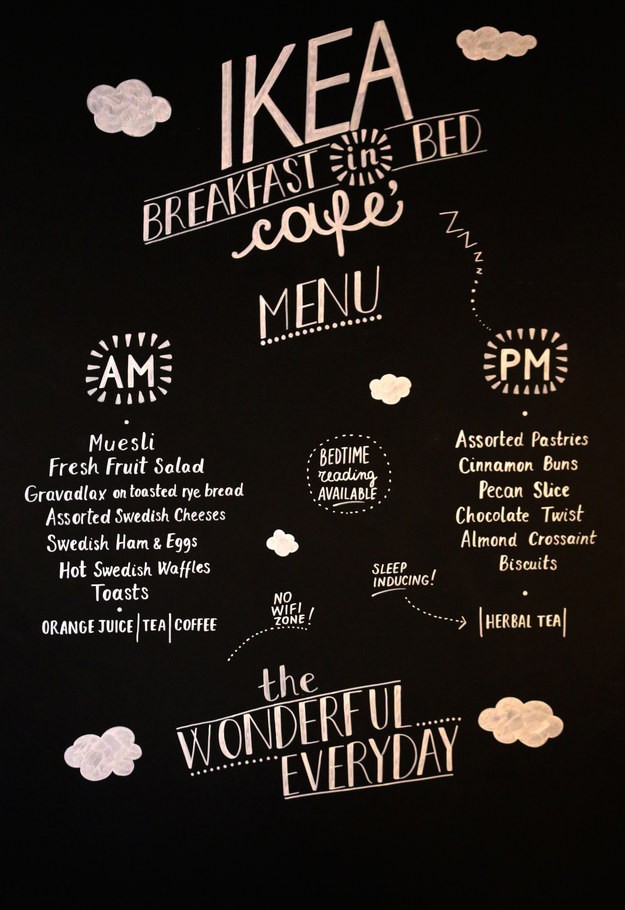 IKEA
BREAKFAST in BED
café
MENU
AM
Muesli
Fresh Fruit Salad
Gravadlax on toasted rye bread
Assorted Swedish Cheeses
Swedish Ham & Eggs
Hot Swedish Waffles
Toasts
ORANGE JUICE | TEA | COFFEE
BEDTIME
reading
AVAILABLE
NO
WIFI
ZONE!
ZZZZZ
PM
Assorted Pastries
Cinnamon Buns
Pecan Slice
Chocolate Twist
Almond Crossaint
Biscuits
SLEEP
INDUCING!
|HERBAL TEA|
the
WONDERFUL
EVERYDAY